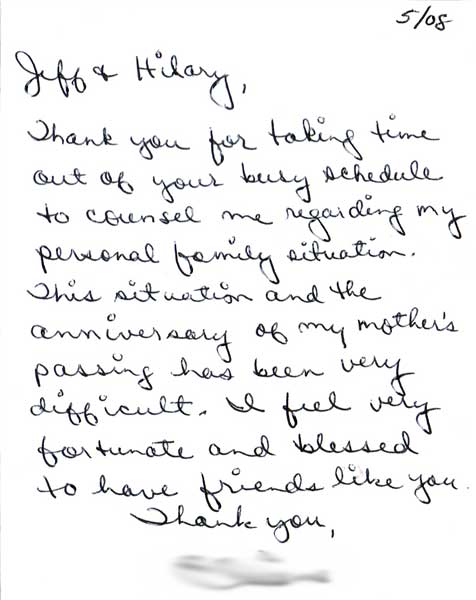 5/08
Jeff & Hilary,
Thank you for taking time
out of your busy schedule
to counsel me regarding my
personal family situation.
This situation and the
anniversary of my mother's
passing has been very
difficult. I feel very
fortunate and blessed
to have friends like you.
Thank you,